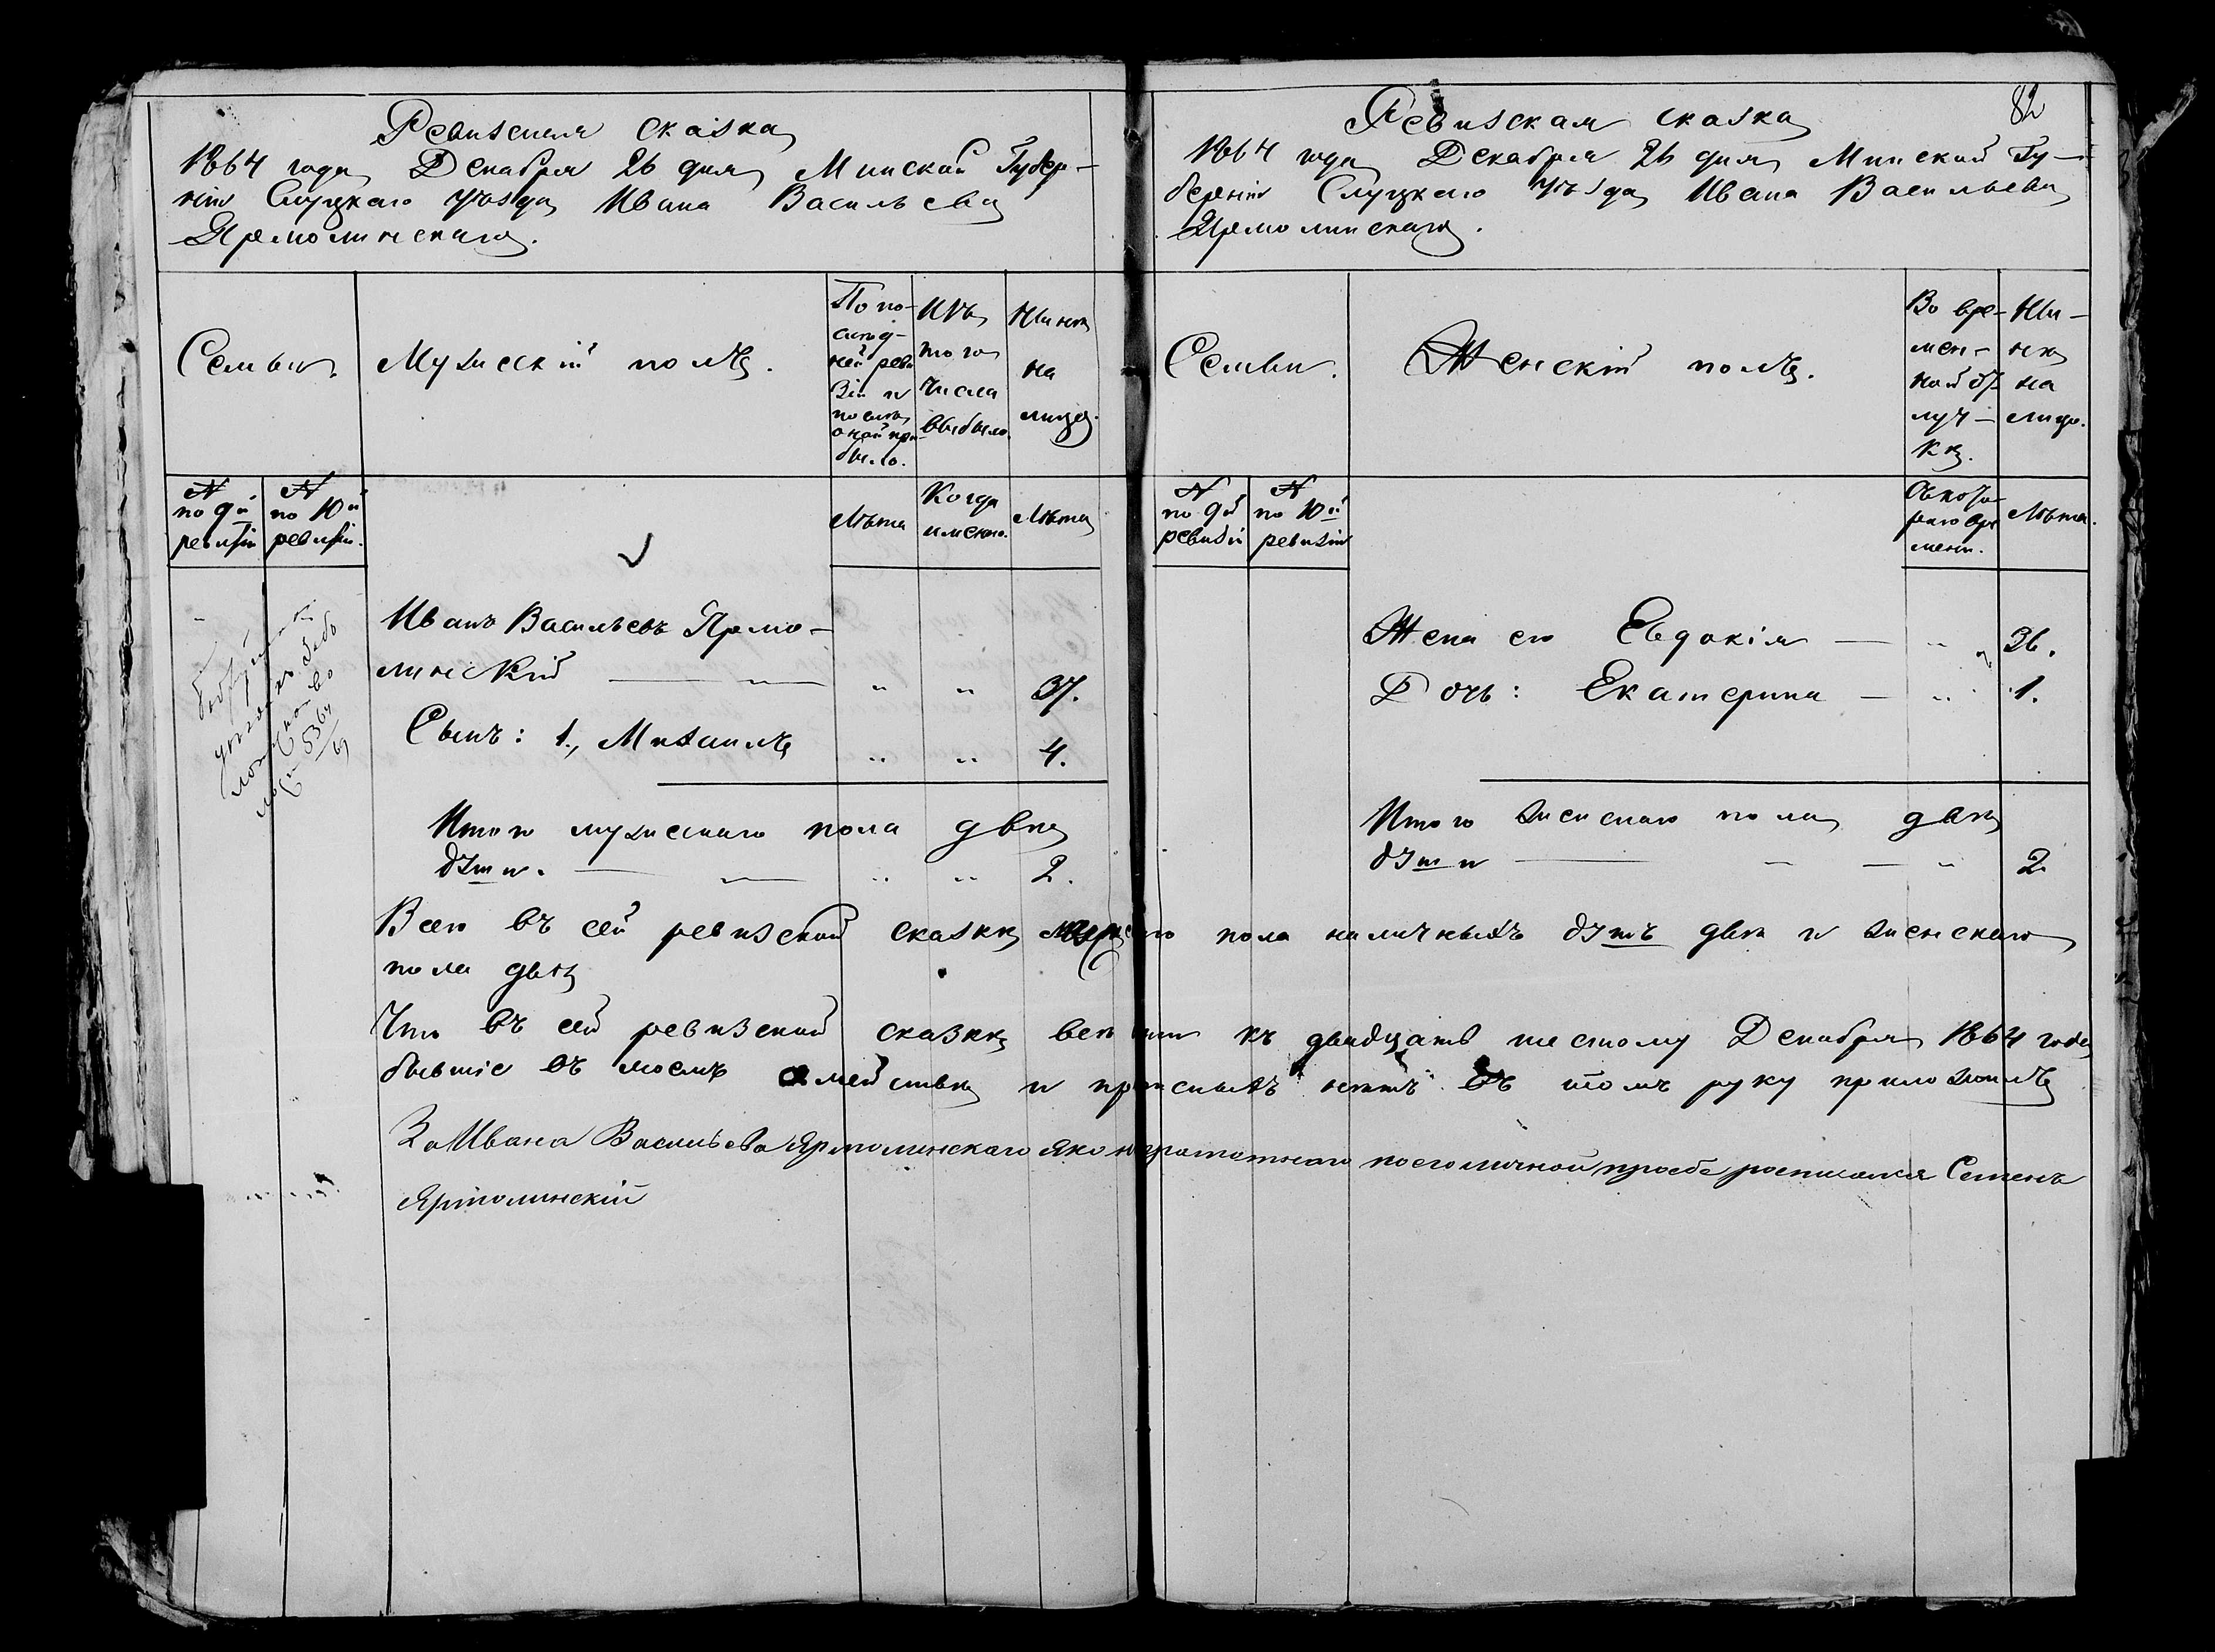 Ревизская сказка
1864 года Декабря 26 дня Минской Губер-
ніи Слуцкаго уѣзда Ивана Васильева
Ярмолинскаго.
Семьи.
Мужескій полъ.
По по-
слѣд-
ней реви
зіи и
послѣ
оной при-
было.
Изъ
того
числа
выбыло.
Нынѣ
на
лицо.
№
по 9й
ревизіи
№
по 10й
ревизіи.
Лѣта
Когда
именно.
Лѣта
Иванъ Васильевъ Ярмо-
линскій — „ — „ „ 37.
Сынъ: 1, Михаилъ „ „ 4.
Итого мужескаго пола двѣ
души. — „ — „ „ 2.
82
Ревизская сказка
1864 года Декабря 26 дня Минской Гу-
берніи Слуцкаго уѣзда Ивана Васильева
Ярмолинскаго.
Семьи.
Женскій полъ.
Во вре-
мен-
ной от
луч-
кѣ.
Ны-
нѣ
на
лицо.
№
по 9й
ревизіи
№
по 10й
ревизіи
Съ кото-
раго вре
мени.
Лѣта.
Жена его Евдокія — „ 36.
Дочь: Екатерина — „ 1.
Итого женскаго пола двѣ
души — — — „ 2
Всего въ сей ревизской сказкѣ мужскаго пола наличныхъ душъ двѣ и женскаго
пола двѣ
Что въ сей ревизской сказкѣ всѣ къ двадцать шестому Декабря 1864 года
бывшіе въ моемъ семействѣ и прописныхъ нѣтъ въ томъ руку приложилъ
За Ивана Васильева Ярмолинскаго яко неграмотнаго по его личной прозбе росписался Семенъ
Ярмолинскій